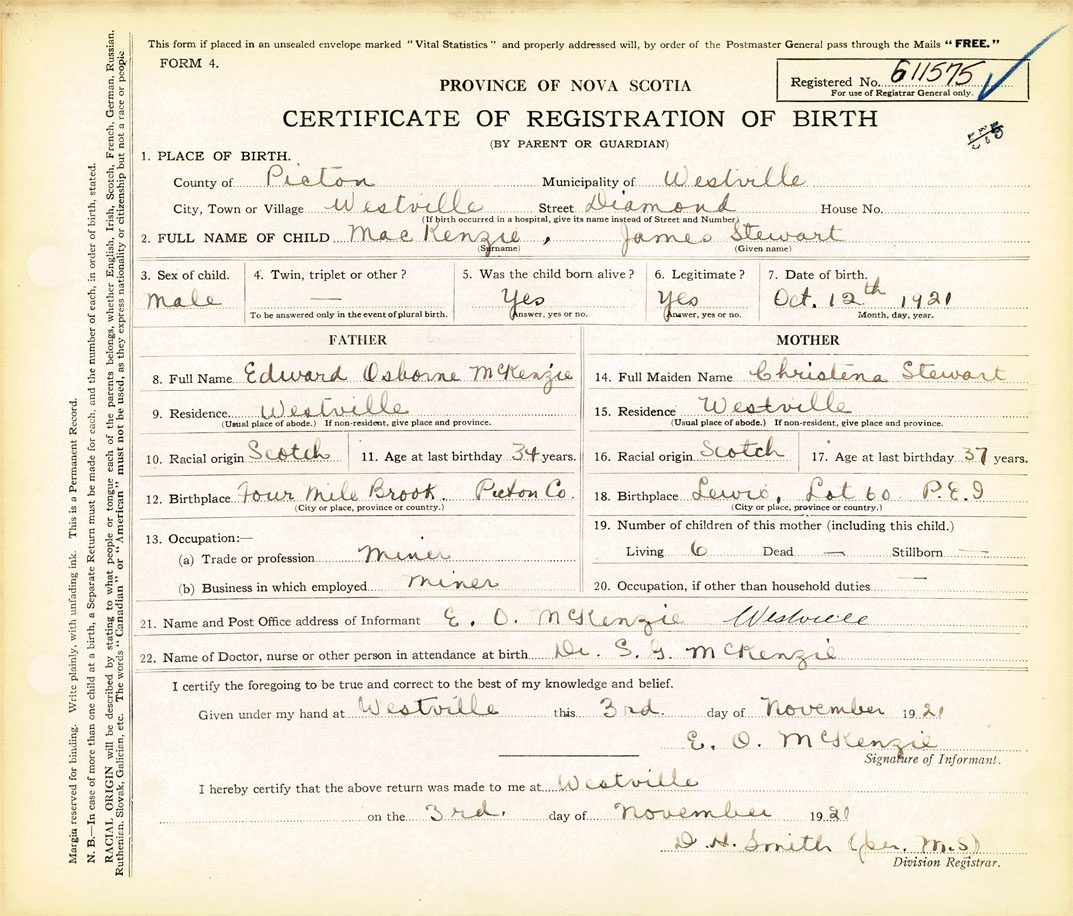 This form if placed in an unsealed envelope marked "Vital Statistics" and properly addressed will, by order of the Postmaster General pass through the Mails "FREE."
FORM 4.
Registered No. 611575
For use of Registrar General only.
PROVINCE OF NOVA SCOTIA
CERTIFICATE OF REGISTRATION OF BIRTH
(BY PARENT OR GUARDIAN)
1. PLACE OF BIRTH.
County of Picton Municipality of Westville
City, Town or Village Westville Street Diamond House No.
(If birth occurred in a hospital, give its name instead of Street and Number)
2. FULL NAME OF CHILD MacKenzie, James Stewart
(Surname) (Given name)
3. Sex of child. 4. Twin, triplet or other? 5. Was the child born alive? 6. Legitimate? 7. Date of birth.
Male — Yes Yes Oct. 12th 1921
To be answered only in the event of plural birth. Answer, yes or no. Answer, yes or no. Month, day, year.
FATHER
8. Full Name Edward Osborne McKenzie
9. Residence Westville
(Usual place of abode.) If non-resident, give place and province.
10. Racial origin Scotch 11. Age at last birthday 34 years.
12. Birthplace Four Mile Brook. Picton Co.
(City or place, province or country.)
13. Occupation:—
(a) Trade or profession Miner
(b) Business in which employed Miner
MOTHER
14. Full Maiden Name Christena Stewart
15. Residence Westville
(Usual place of abode.) If non-resident, give place and province.
16. Racial origin Scotch 17. Age at last birthday 37 years.
18. Birthplace Lewis, Lot 60 P.E.I
(City or place, province or country.)
19. Number of children of this mother (including this child.)
Living 6 Dead — Stillborn —
20. Occupation, if other than household duties —
21. Name and Post Office address of Informant E. O. McKenzie Westville
22. Name of Doctor, nurse or other person in attendance at birth Dr. S. G. McKenzie
I certify the foregoing to be true and correct to the best of my knowledge and belief.
Given under my hand at Westville this 3rd. day of November 1921
E. O. McKenzie
Signature of Informant.
I hereby certify that the above return was made to me at Westville
on the 3rd. day of November 1921
D. H. Smith (per. M.S)
Division Registrar.
Margin reserved for binding. Write plainly, with unfading ink. This is a Permanent Record.
N. B.—In case of more than one child at a birth, a Separate Return must be made for each, and the number of each, in order of birth, stated.
RACIAL ORIGIN will be described by stating to what people or tongue each of the parents belongs, whether English, Irish, Scotch, French, German, Russian,
Ruthenian, Slovak, Galician, etc. The words "Canadian" or "American" must not be used, as they express nationality or citizenship but not a race or people.